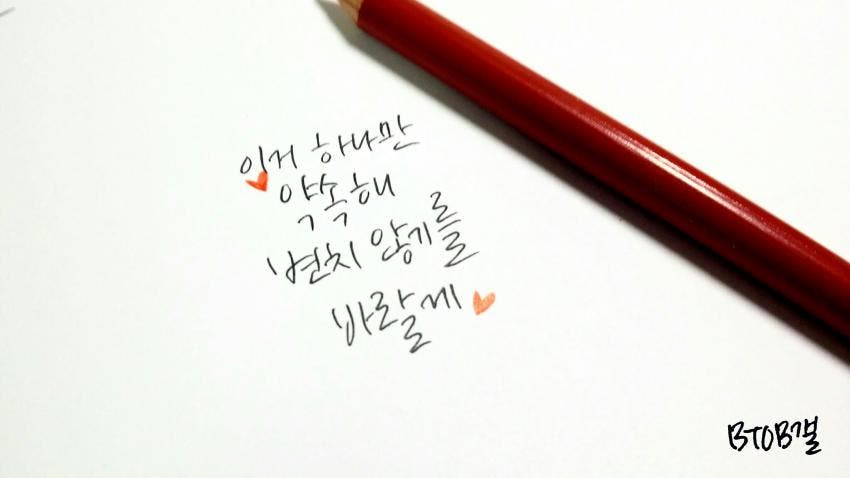 이거 하나만
약속해
변치 않기를
바랄게
BTOB갤